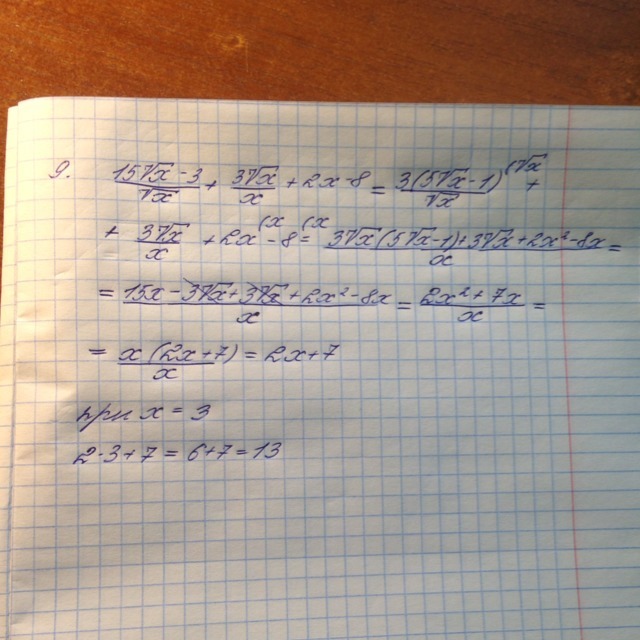 9. (15√x - 3)/√x + 3√x/x + 2x - 8 = 3(5√x - 1)/√x (√x +
+ 3√x/x + 2x (x - 8 (x = (3√x(5√x - 1) + 3√x + 2x² - 8x)/x =
= (15x - 3√x + 3√x + 2x² - 8x)/x = (2x² + 7x)/x =
= x(2x + 7)/x = 2x + 7
при x = 3
2·3 + 7 = 6 + 7 = 13